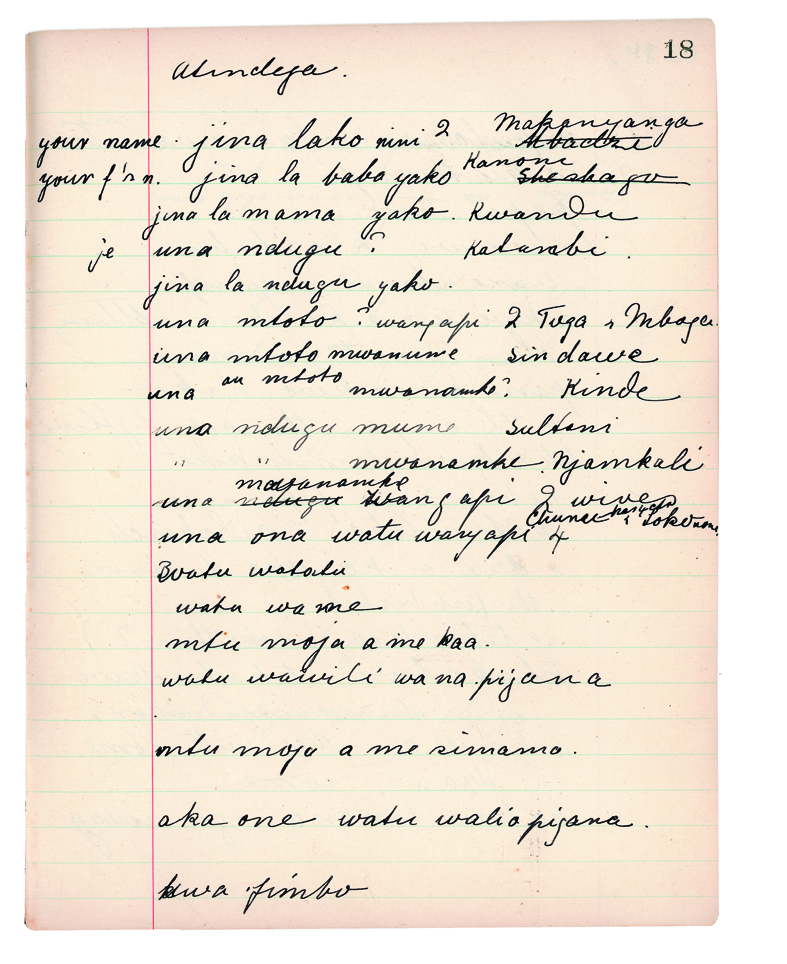 18
Atindega.
Makanyanga
your name. jina lako nini? Mbadzi
Kanoni
your f's n. jina la baba yako Sheshagu
jina la mama yako. Kwandu
je una ndugu? Katambi.
jina la ndugu yako.
una mtoto? wangapi 2 Tuga & Mbaga.
una mtoto mwanume sindawe
una au mtoto mwanamke? Kinde
una ndugu mume sultani
" " mwanamke. Njamkali
mwanamke
una ndugu wangapi 2 wives
Chunei
una ona watu wangapi 4
3 watu watatu
watu wa me
mtu moja a me kaa.
watu wawili wa na pijana
mtu moja a me simama.
aka one watu walio pijana.
kwa fimbo